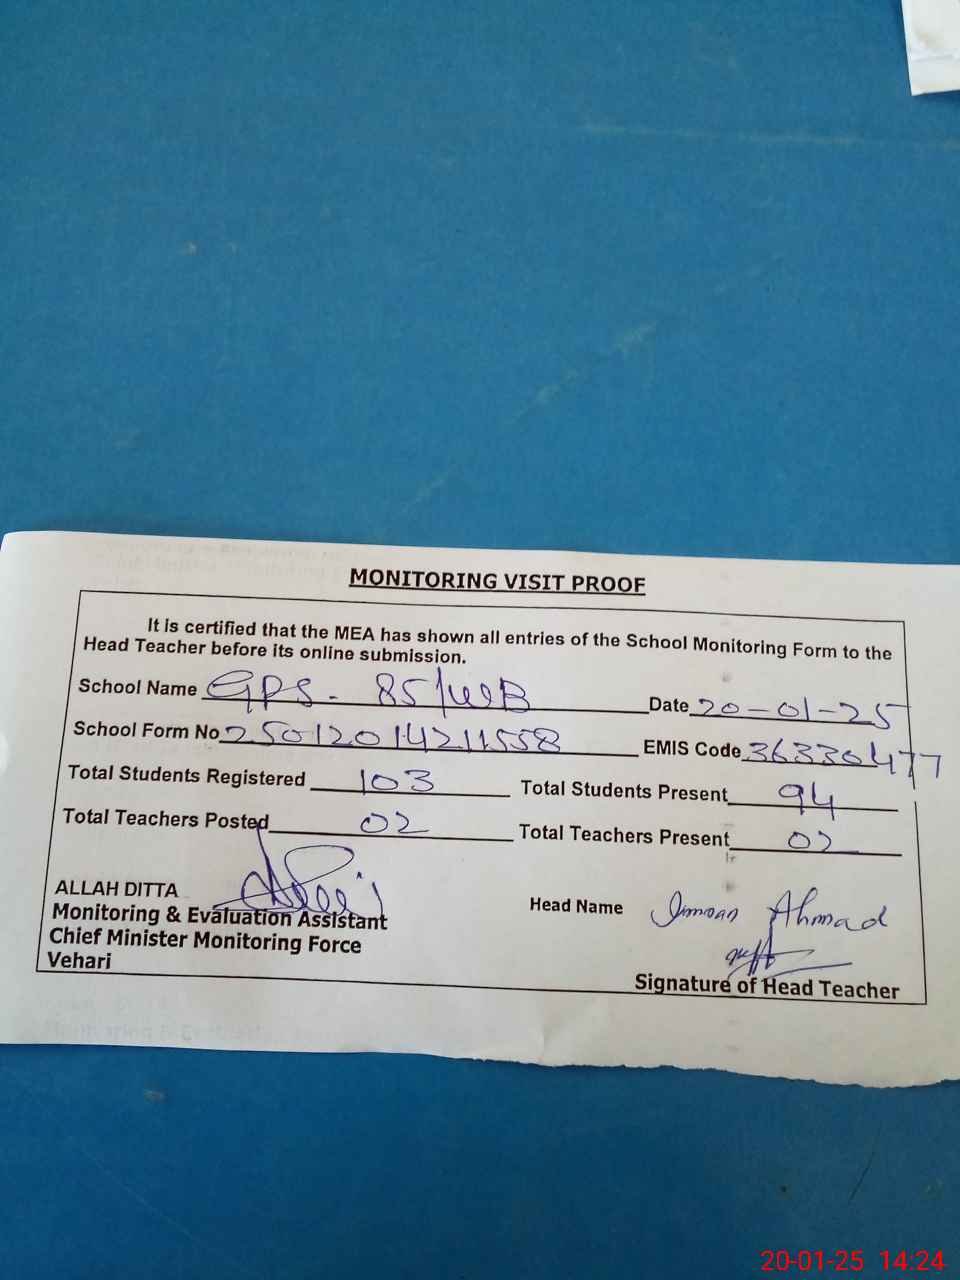 MONITORING VISIT PROOF
It is certified that the MEA has shown all entries of the School Monitoring Form to the
Head Teacher before its online submission.
School Name GPS - 85/WB Date 20-01-25
School Form No 25012014211558 EMIS Code 36330477
Total Students Registered 103 Total Students Present 94
Total Teachers Posted 02 Total Teachers Present 02
ALLAH DITTA
Monitoring & Evaluation Assistant
Chief Minister Monitoring Force
Vehari
Head Name Imran Ahmad
Signature of Head Teacher
20-01-25 14:24